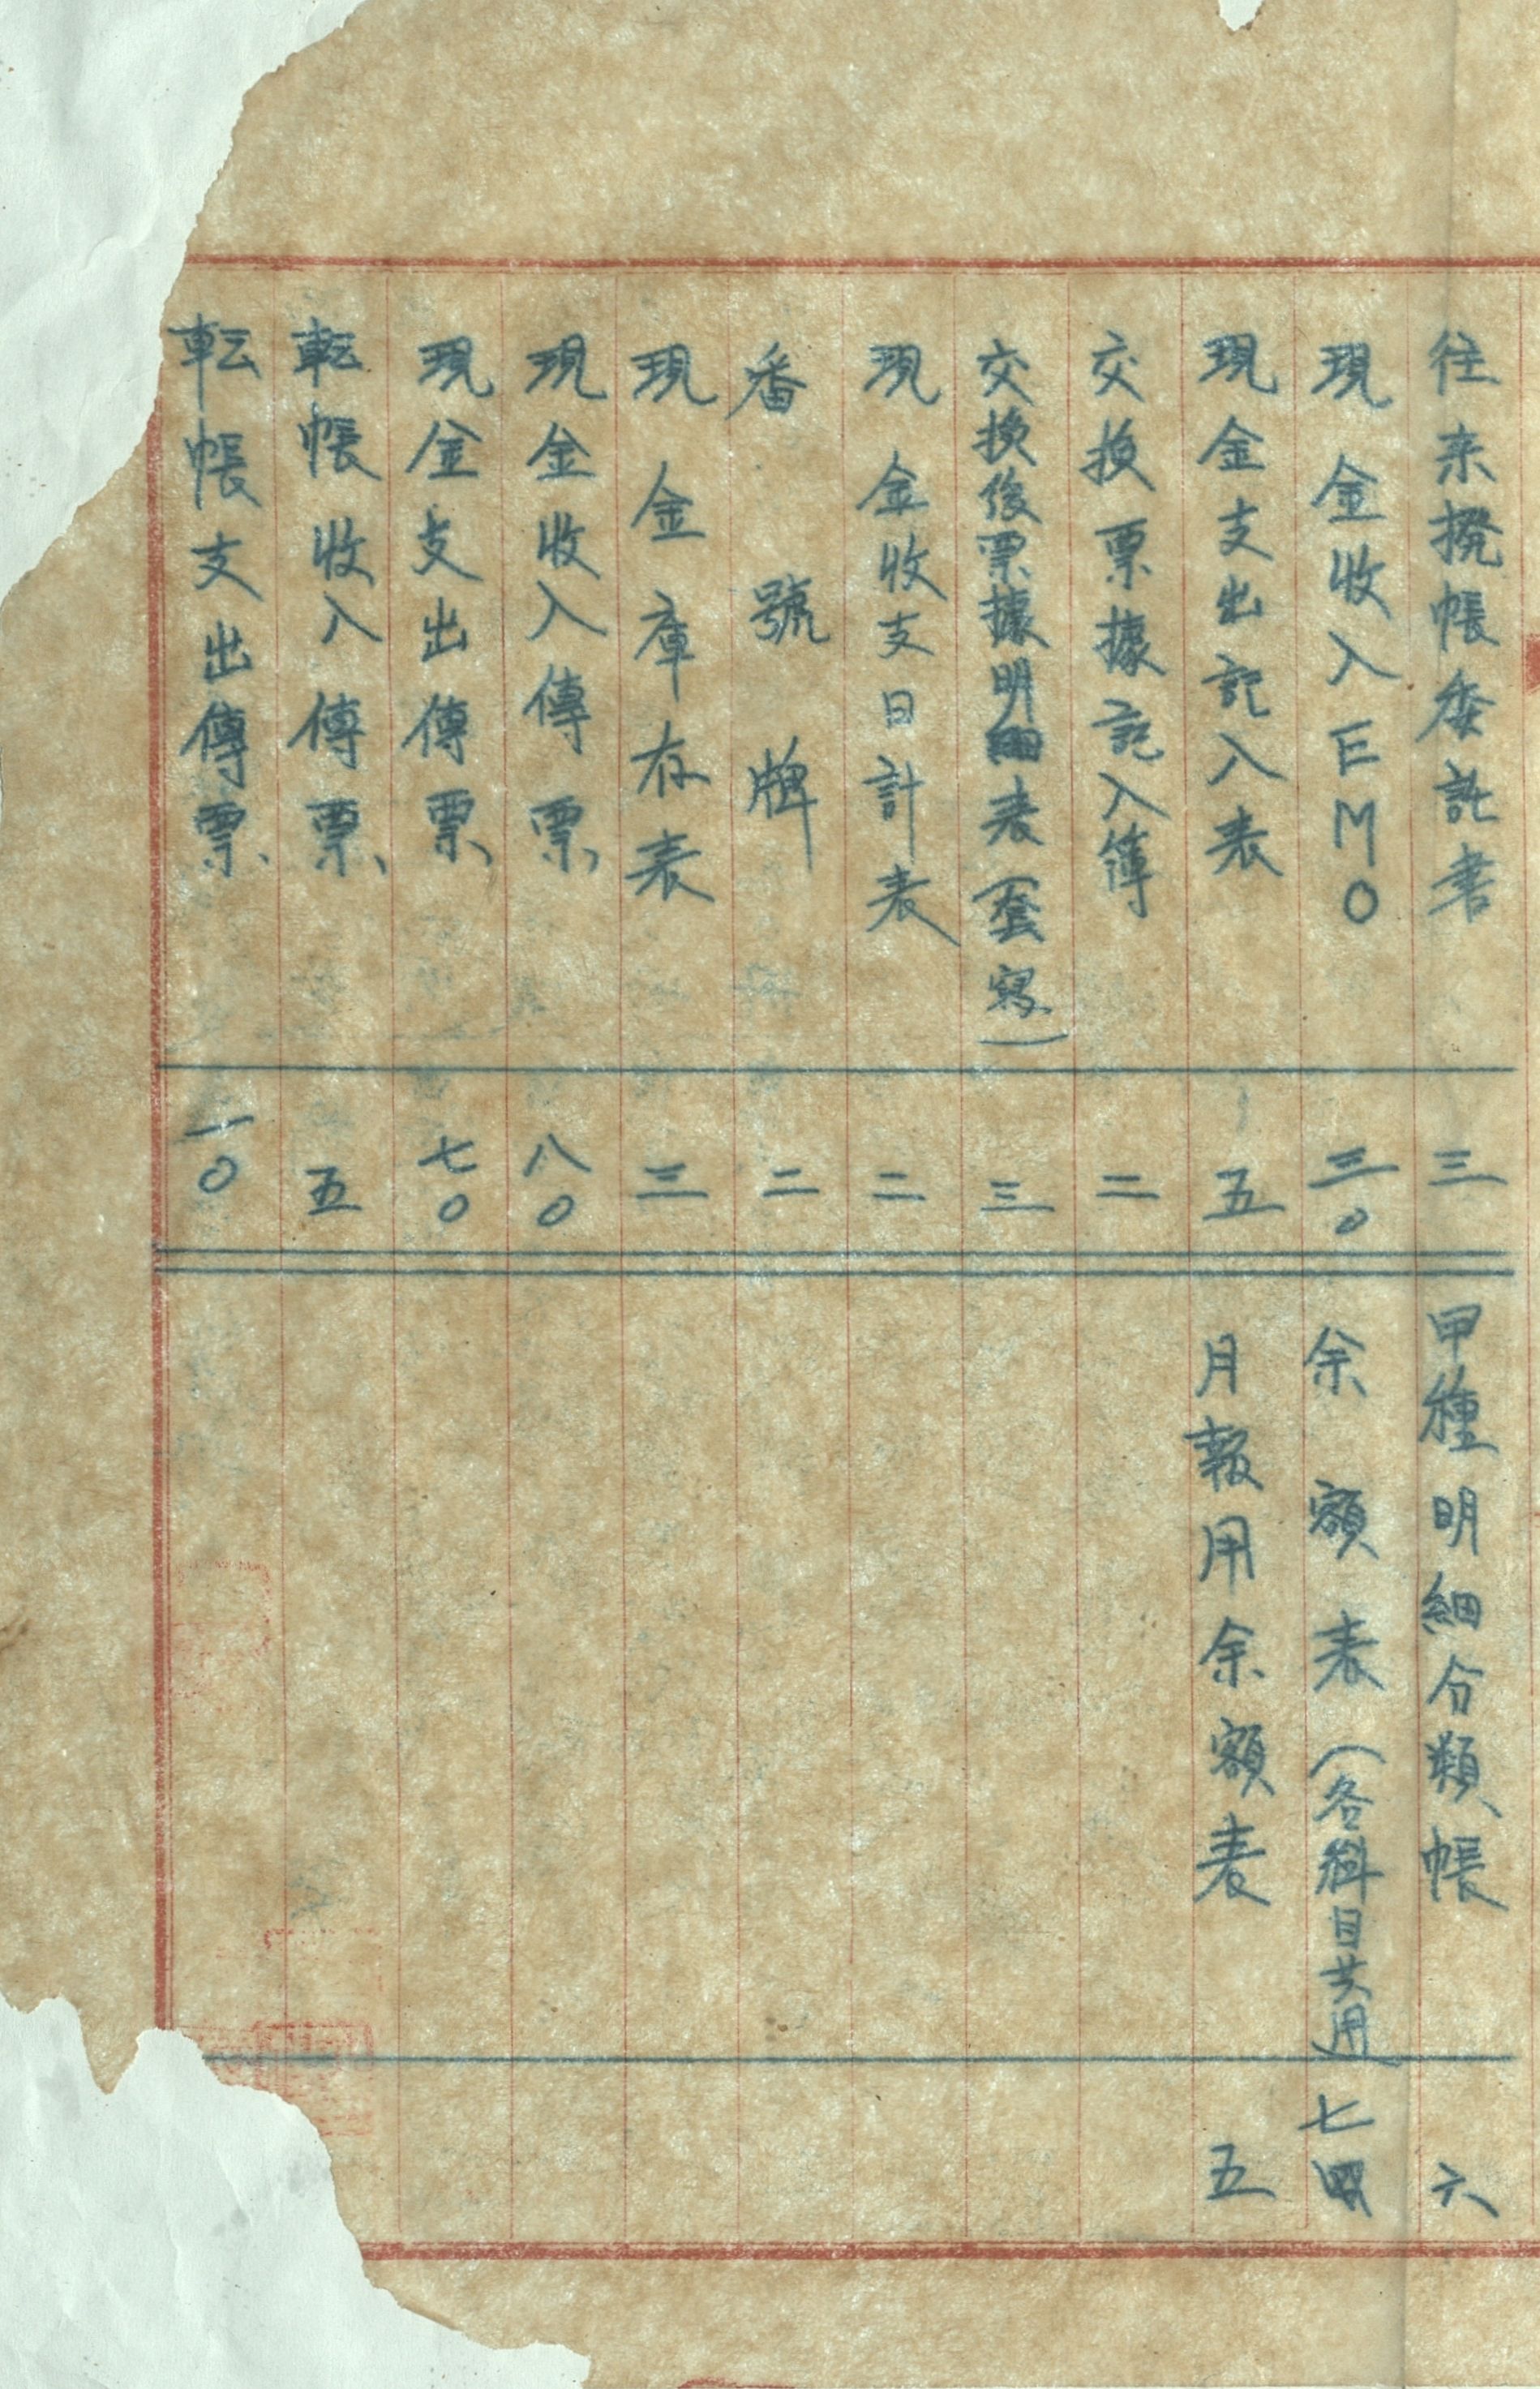 往来撥帳委託書 三
現金収入EMO 三〇
現金支出記入表 五
交換票據記入簿 二
交換後票據明細表(套寫) 三
現金收支日計表 二
番號牌 二
現金庫存表 三
現金收入傳票 八〇
現金支出傳票 七〇
転帳收入傳票 五
転帳支出傳票 一〇
甲種明細分類帳 六
余額表(各科目共通 七四
月報用余額表 五